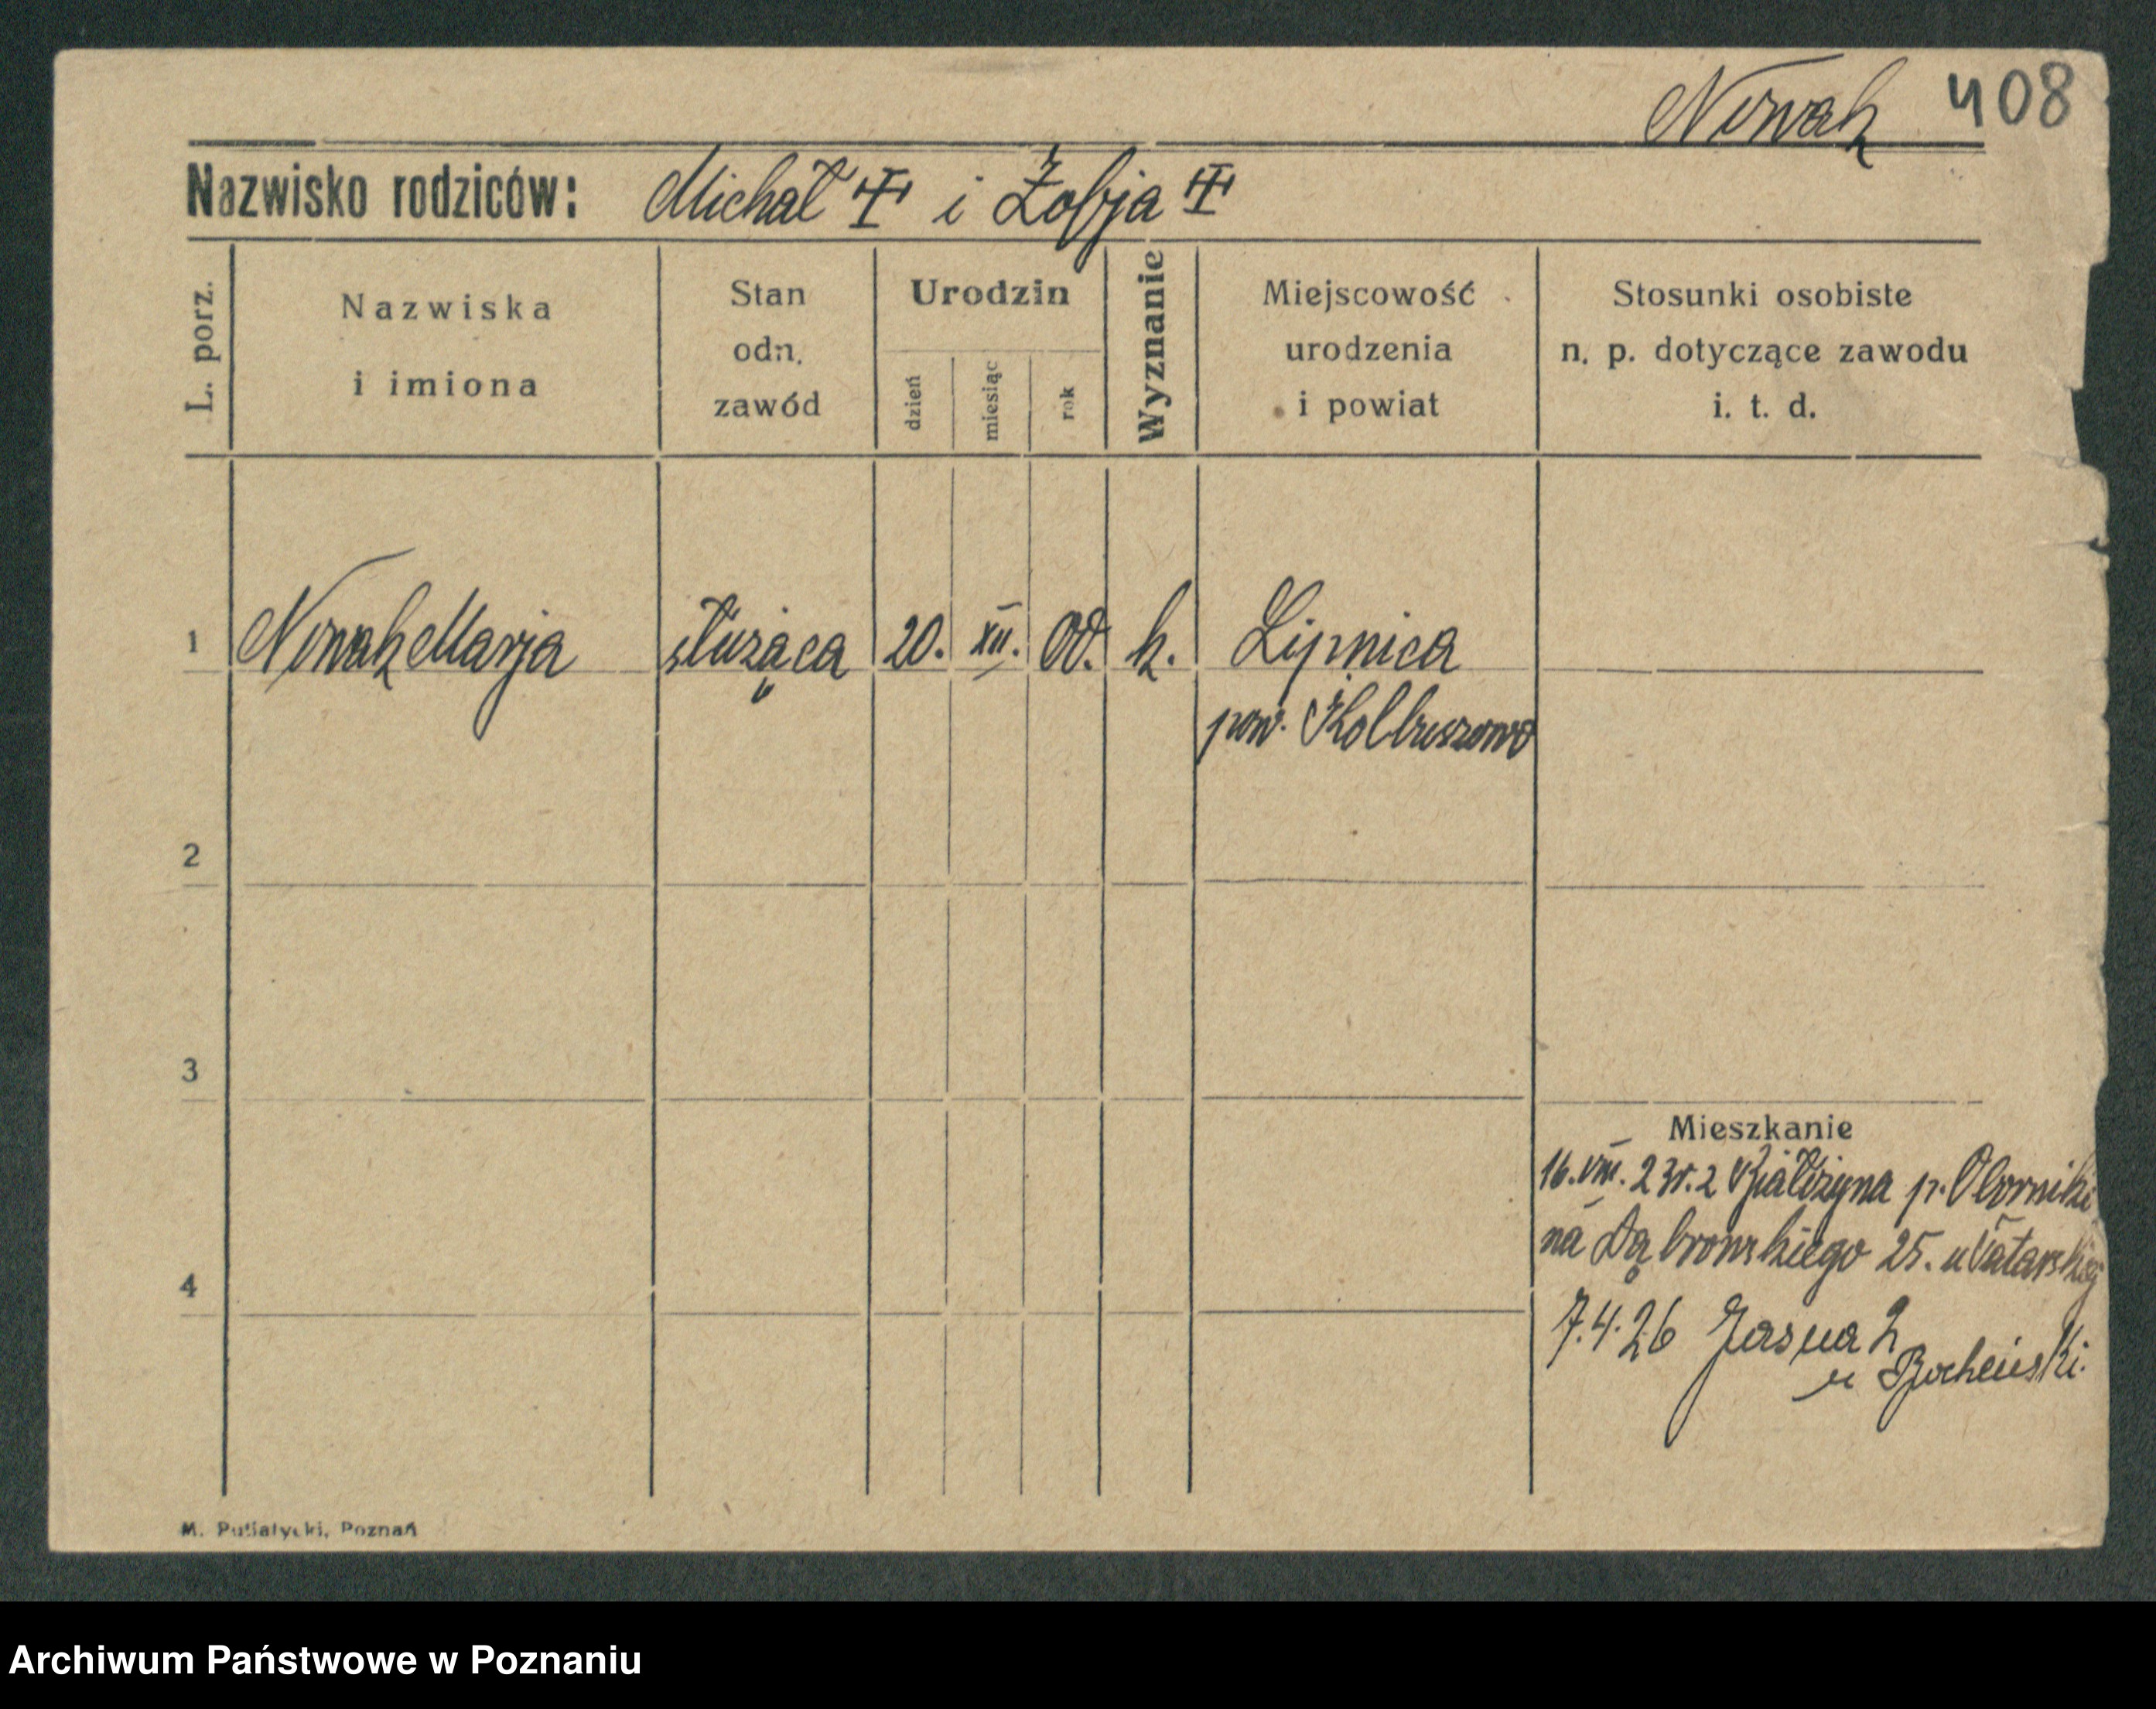 Nowak 408
Nazwisko rodziców: Michał i Zofja
L. porz.
Nazwiska
i imiona
Stan
odn.
zawód
Urodzin
dzień
miesiąc
rok
Wyznanie
Miejscowość
urodzenia
i powiat
Stosunki osobiste
n. p. dotyczące zawodu
i. t. d.
1 Nowak Marja służąca 20. XII. 00. k. Lipnica
pow. Kolbuszowa
2
3
4
Mieszkanie
16.VIII.23r. z p. Oborniki
na Dąbrowskiego 25. u Tatarskiej
7.4.26 Jasna 2
u
M. Putiatycki, Poznań
Archiwum Państwowe w Poznaniu